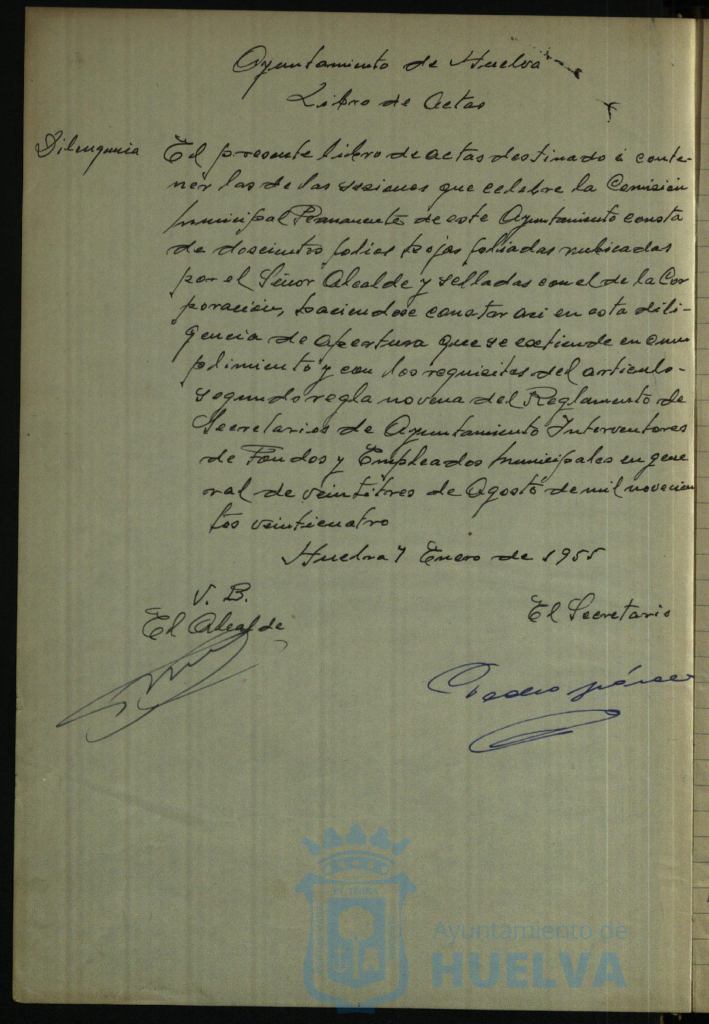 Ayuntamiento de Huelva
Libro de actas
Diligencia
El presente libro de actas destinado a conte-
ner las de las sesiones que celebre la Comisión
municipal Permanente de este Ayuntamiento consta
de doscientos folios hojas foliadas rubricadas
por el Señor Alcalde y selladas con el de la Cor
poración, haciendose constar asi en esta dili-
gencia de apertura que se extiende en cum
plimiento y con los requisitos del articulo-
segundo regla novena del Reglamento de
Secretarios de Ayuntamiento Interventores
de Fondos y Empleados municipales en gene
ral de veintitres de Agosto de mil novecien
tos veinticuatro
Huelva 7 Enero de 1955
V. B.
El Alcalde
El Secretario
Pedro
Ayuntamiento de
HUELVA